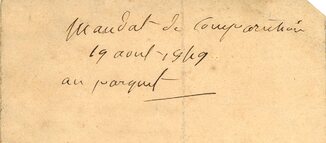 Mandat de Comparution
19 avril 1949
au parquet